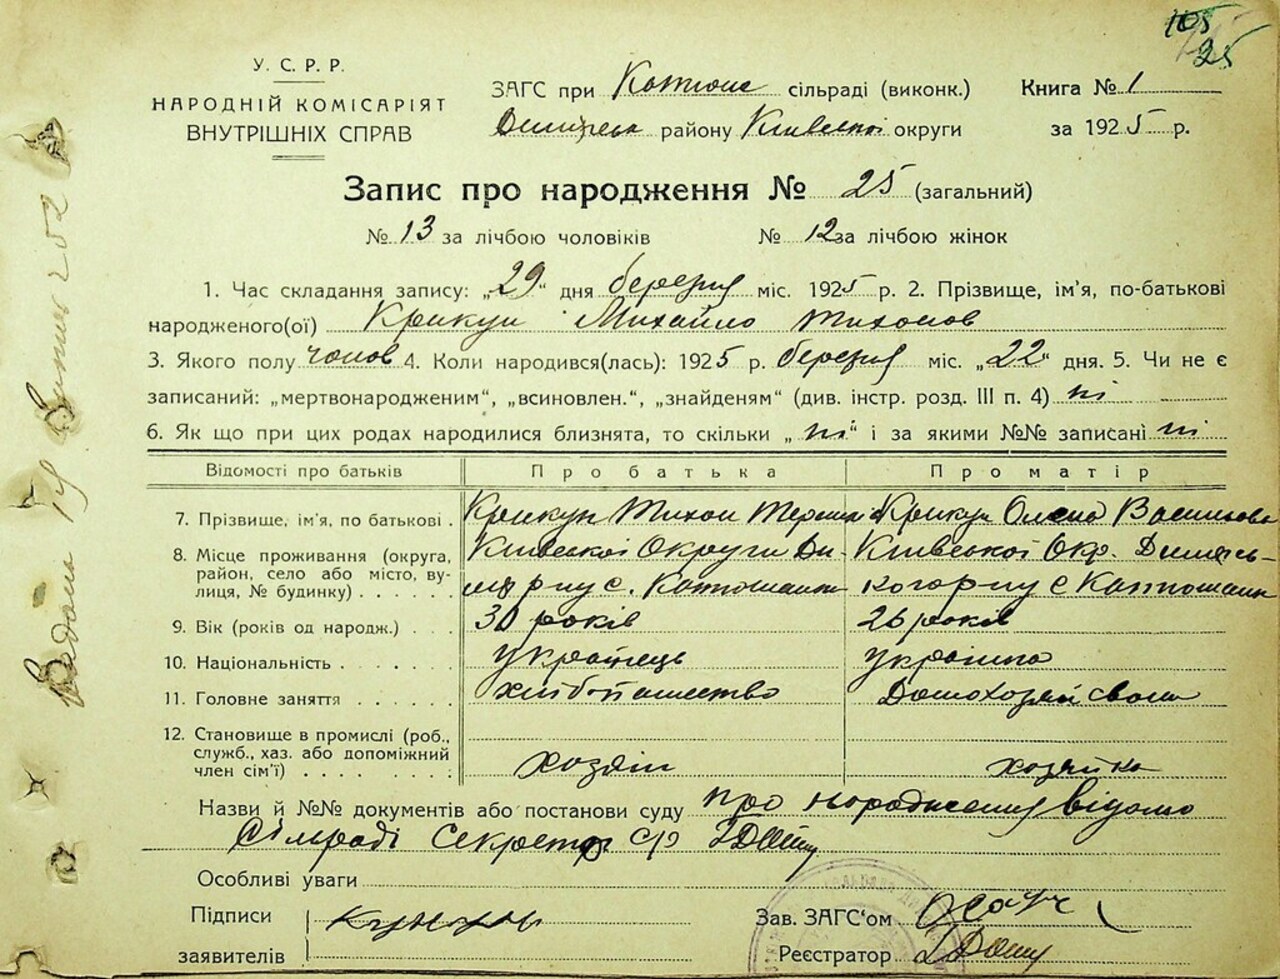 105
25
У. С. Р. Р.
НАРОДНІЙ КОМІСАРІЯТ
ВНУТРІШНІХ СПРАВ
ЗАГС при сільраді (виконк.)
району Київської округи
Книга № 1
за 1925 р.
Запис про народження № 25 (загальний)
№ 13 за лічбою чоловіків № 12 за лічбою жінок
1. Час складання запису: „29“ дня березня міс. 1925 р. 2. Прізвище, ім'я, по-батькові
народженого(ої) Крикун Михайло Тихонов
3. Якого полу чолов 4. Коли народився(лась): 1925 р. березня міс. „22“ дня. 5. Чи не є
записаний: „мертвонародженим“, „всиновлен.“, „знайденям“ (див. інстр. розд. III п. 4) ні
6. Як що при цих родах народилися близнята, то скільки „ні“ і за якими №№ записані ні
Відомості про батьків Про батька Про матір
7. Прізвище, ім'я, по батькові . Крикун Тихон Крикун Олена Васильова
8. Місце проживання (округа, Київської Округи Ди- Київської Окр. Димерсь-
район, село або місто, ву- с. кого р-ну с
лиця, № будинку) . . . . .
9. Вік (років од народж.) . . . 30 років 26 років
10. Національність . . . . . українець українка
11. Головне заняття . . . . . хлібопашество
12. Становище в промислі (роб.,
служб., хаз. або допоміжний хозяін хозяйка
член сім'ї) . . . . . . . .
Назви й №№ документів або постанови суду про народження відомо
Сільраді Секретар с/р
Особливі уваги
Підписи
заявителів
Крикун
Зав. ЗАГС‘ом
Реєстратор